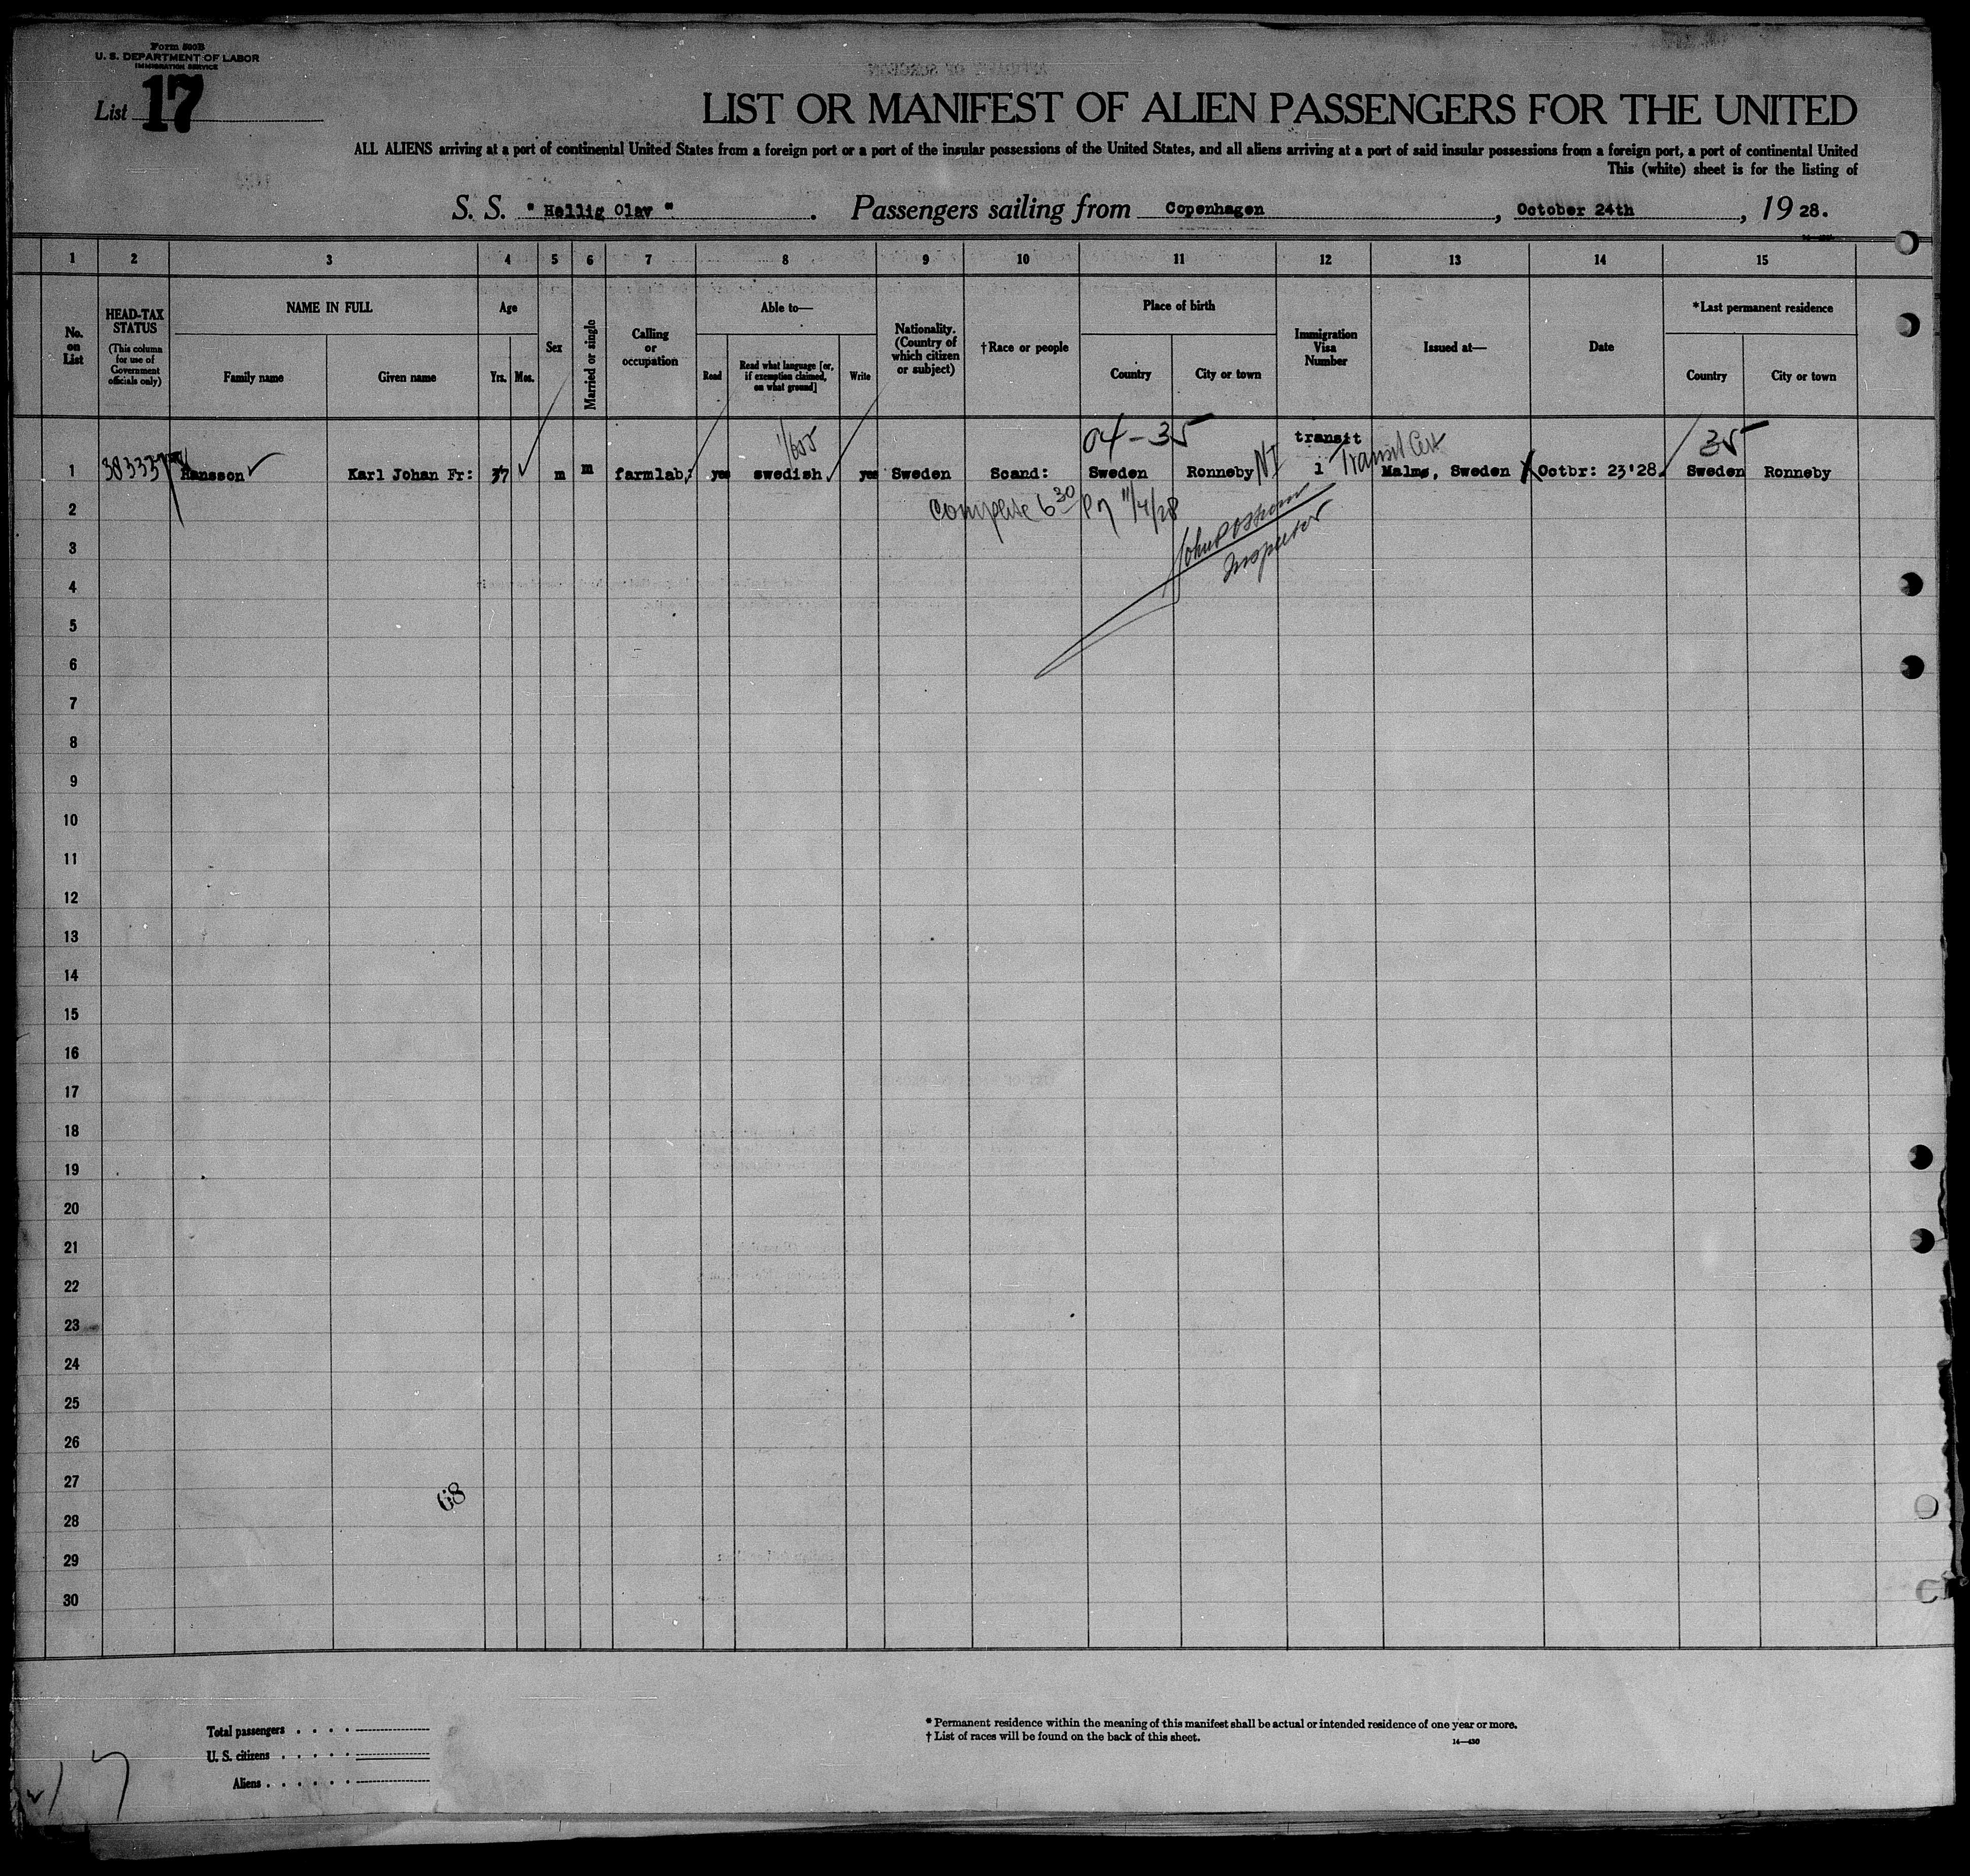 Form 500B
U. S. DEPARTMENT OF LABOR
IMMIGRATION SERVICE
List 17
LIST OR MANIFEST OF ALIEN PASSENGERS FOR THE UNITED
ALL ALIENS arriving at a port of continental United States from a foreign port or a port of the insular possessions of the United States, and all aliens arriving at a port of said insular possessions from a foreign port, a port of continental United
This (white) sheet is for the listing of
S. S. " Hellig Olav " . Passengers sailing from Copenhagen , October 24th , 19 28.
1 2 3 4 5 6 7 8 9 10 11 12 13 14 15
No. on List
HEAD-TAX STATUS
(This column for use of Government officials only)
NAME IN FULL
Family name
Given name
Age
Yrs. Mos.
Sex
Married or single
Calling or occupation
Able to—
Read
Read what language [or, if exemption claimed, on what ground]
Write
Nationality. (Country of which citizen or subject)
†Race or people
Place of birth
Country
City or town
Immigration Visa Number
Issued at—
Date
*Last permanent residence
Country
City or town
04-35 transit 35
1 Hansson Karl Johan Fr: 37 m m farmlab: yes swedish yes Sweden Scand: Sweden Ronneby NI 1 Transit Cert Malmø, Sweden Octbr: 23'28 Sweden Ronneby
2 Complete 6 30 Pm 11/4/28
3
Inspector
4
5
6
7
8
9
10
11
12
13
14
15
16
17
18
19
20
21
22
23
24
25
26
27
68
28
29
30
Total passengers . . . .
U. S. citizens . . . . .
Aliens . . . . . .
* Permanent residence within the meaning of this manifest shall be actual or intended residence of one year or more.
† List of races will be found on the back of this sheet.
14—430
17